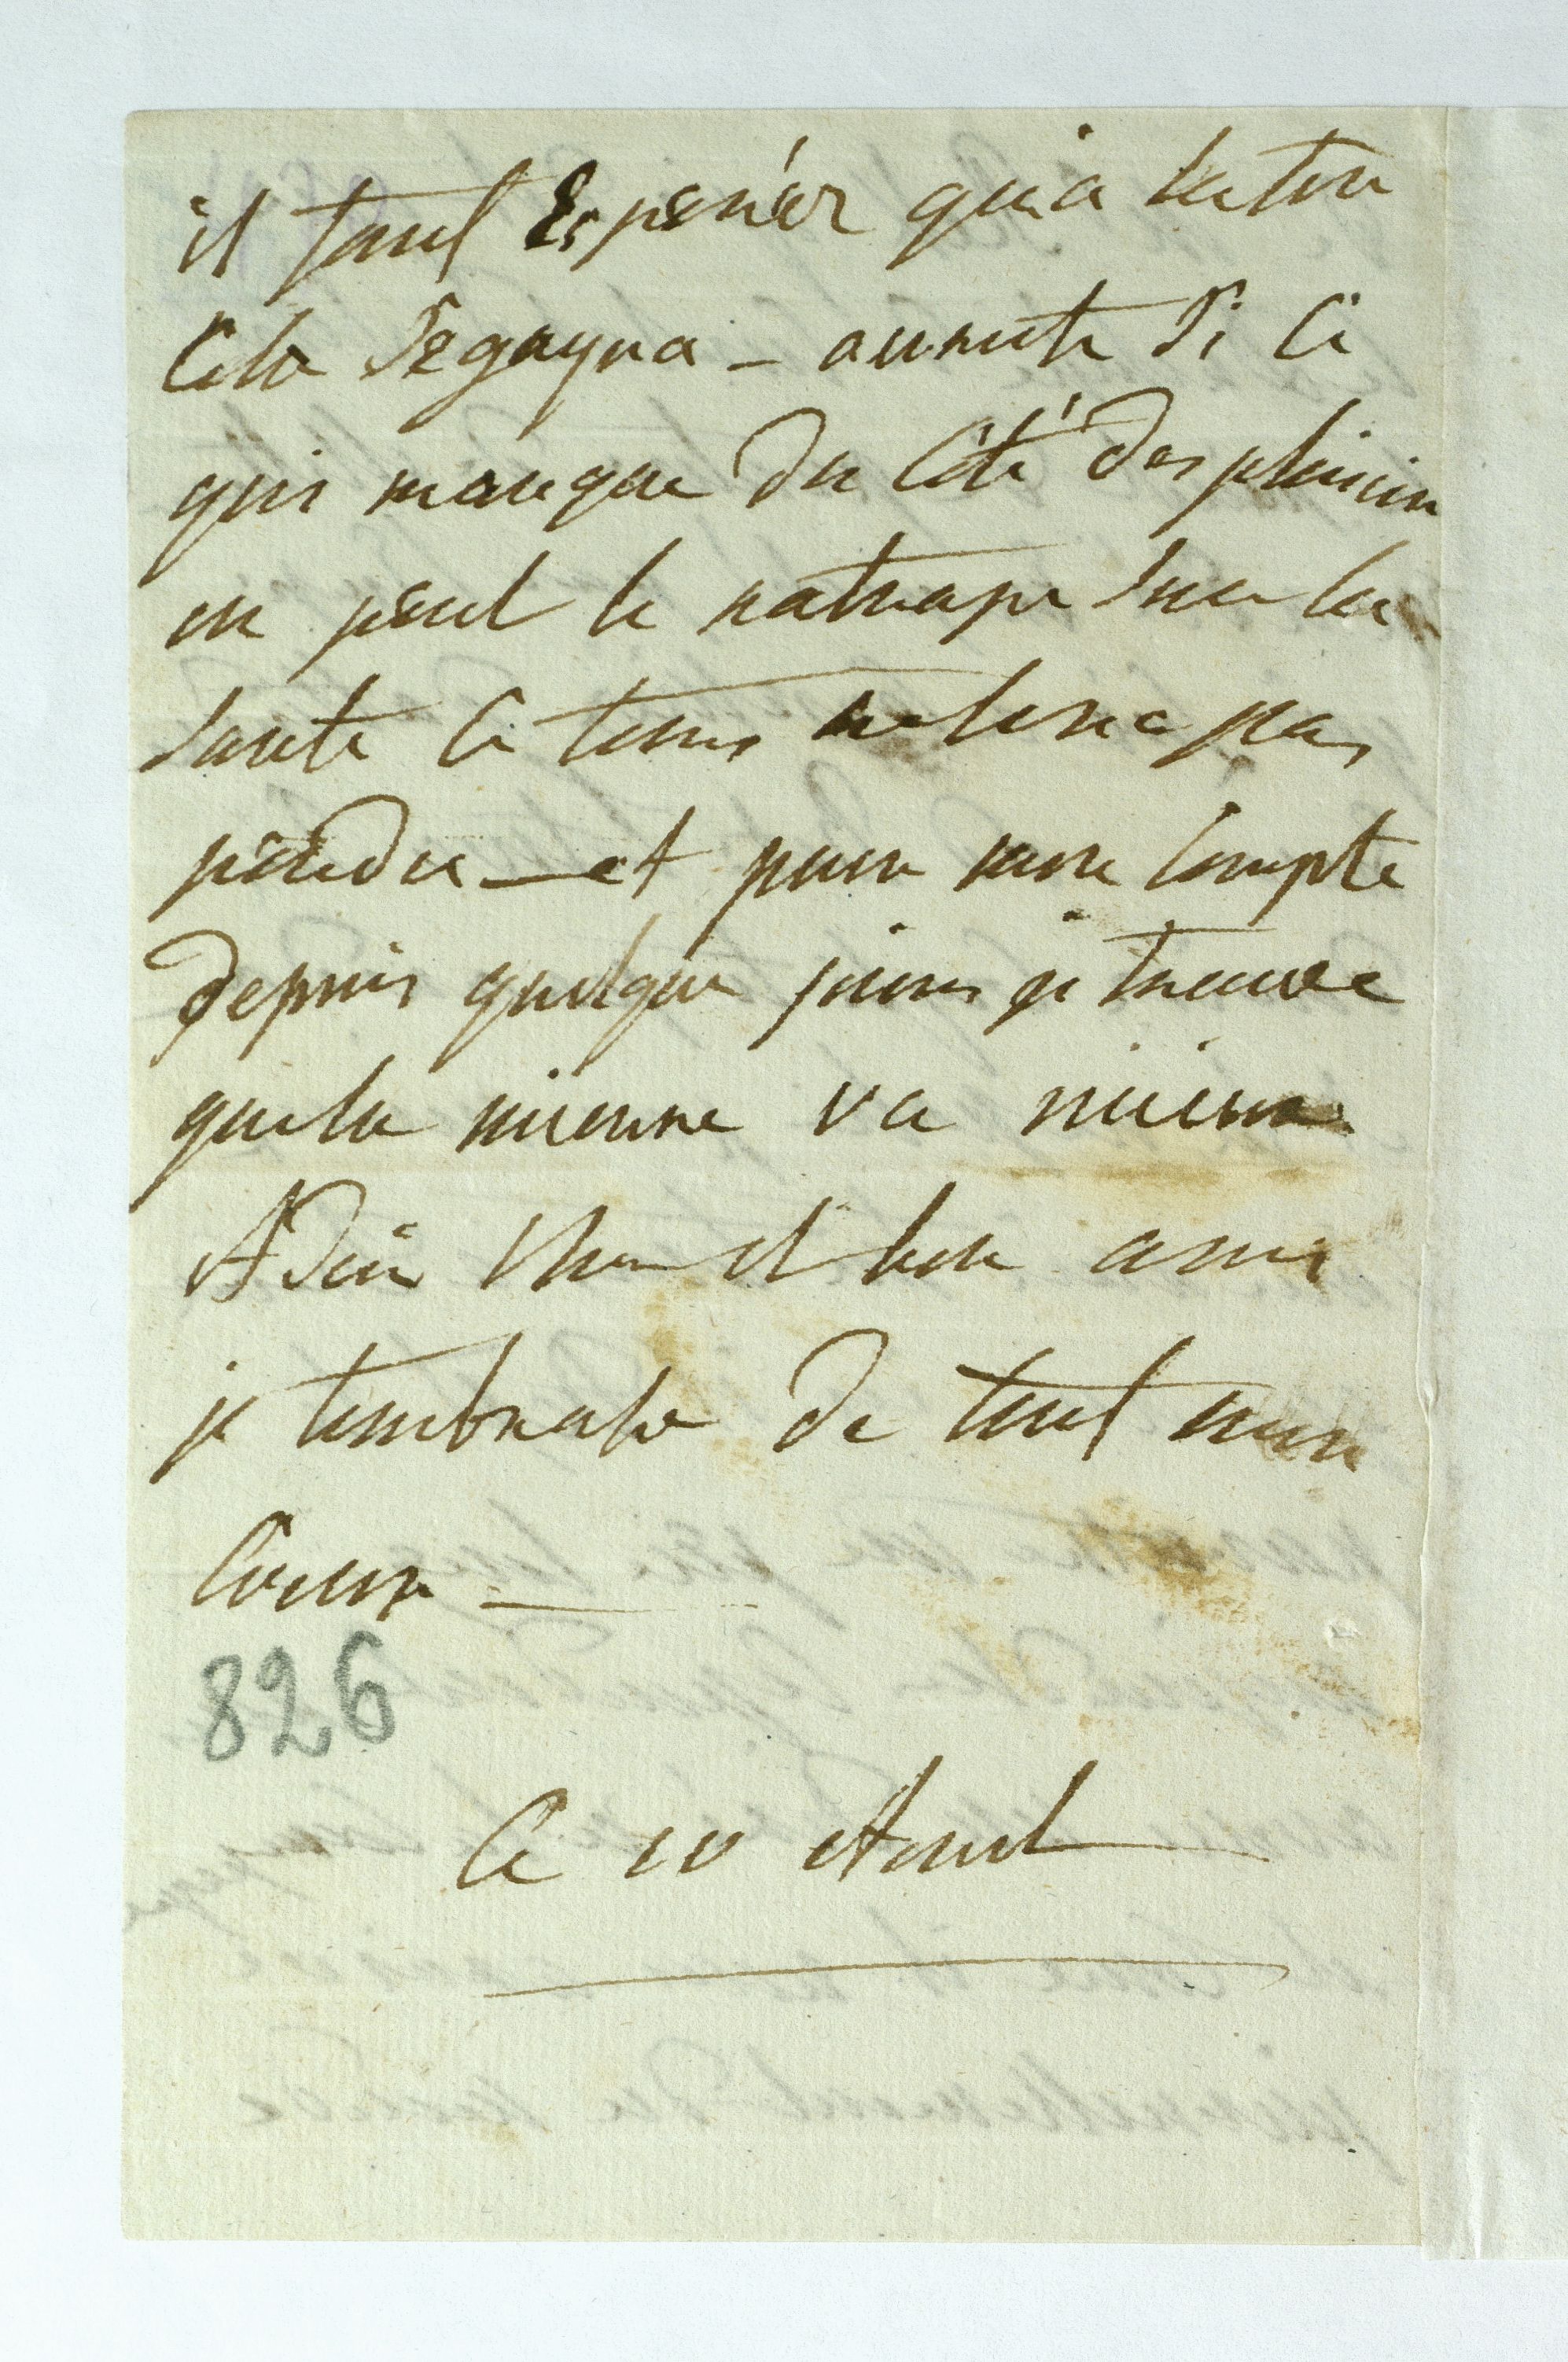 il faut Esperér qu'a la fin
Cela Se gagna - au reste Si Ce
qui manque du Côté des plaisirs
on peut le ratrape Sur la
Santé Ce tems ne Sera pas
perdu - et pour mon Compte
depuis quelque jours je trouve
que la mienne va mieux
Adieu Cher et bon ami
je tembrasse de tout mon
Coeur -
826
Ce 10 Aout